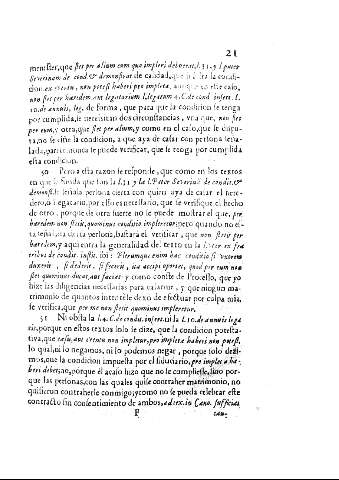 21
menester, que stet per alium cum quo impleri debuerat, l. 31. y l. pater
Severinam de cond. & demonstrat de calidad, que si falta la condi-
cion ex eventu, non potest haberi pro impleta, aunque no este caso,
non stet per hæredem, aut legatarium l. legatum 4. C. de cond. insert. l.
10. de annuis, leg. de forma, que para que la condicion se tenga
por cumplida, se necesitan dos circunstancias, vna que, non stet
per eum, y otra, que stet per alium, y como en el caso, que se dispu-
ta, no se ciñe la condicion, a que aya de casar con persona seña-
lada, parece nunca se puede verificar, que se tenga por cumplida
esta condicion.
30 Pero a esta razon se responde, que como en los textos
en que se funda que son la l. 31. y la l. Pater Severinã de condit. &
demonst. se señala persona cierta con quien aya de casar el here-
dero, o legatario, por esso es necessario, que se verifique el hecho
de otro, porque de otra suerte no se puede mostrar el que, per
hæredem non stetit, quominus conditio impleretur; pero quando no es-
ta señalada cierta persona, bastara el verificar, que non stetit per
hæredem, y aqui entra la generalidad del texto en la l.
tribus de condit. instit. ibi: Plerumque eum hac conditio si vxorem
duxerit, si dederit, si fecerit, ita accipi oportet, quod per eum non
stet quominus ducat, aut faciat y como conste de Procello, que yo
hize las diligencias necessarias para casarme, y que ningun ma-
trimonio de quantos intentè se dexò de efectuar por culpa mia,
se verifica, que per me non stetit quominus impleretur.
31 Ni obsta la l. 4. C. de cond. insert. ni la l. 10. de annuis lega-
tis, porque en estos textos solo se dize, que la condicion potesta-
tiva, que casu, aut eventu non impletur, pro impleta haberi non potest,
lo qual, ni lo negamos, ni lo podemos negar, porque solo dezi-
mos, que la condicion impuesta por el fiduciario, pro impleta ha-
beri debet, no, porque el acaso hizo que no se cumpliesse, sino por-
que las personas, con las quales quise contraher matrimonio, no
quisieron contraherle conmigo, y como no se pueda celebrar este
contracto sin consentimiento de ambos, ad tex. in Cano. sufficiat
F can-